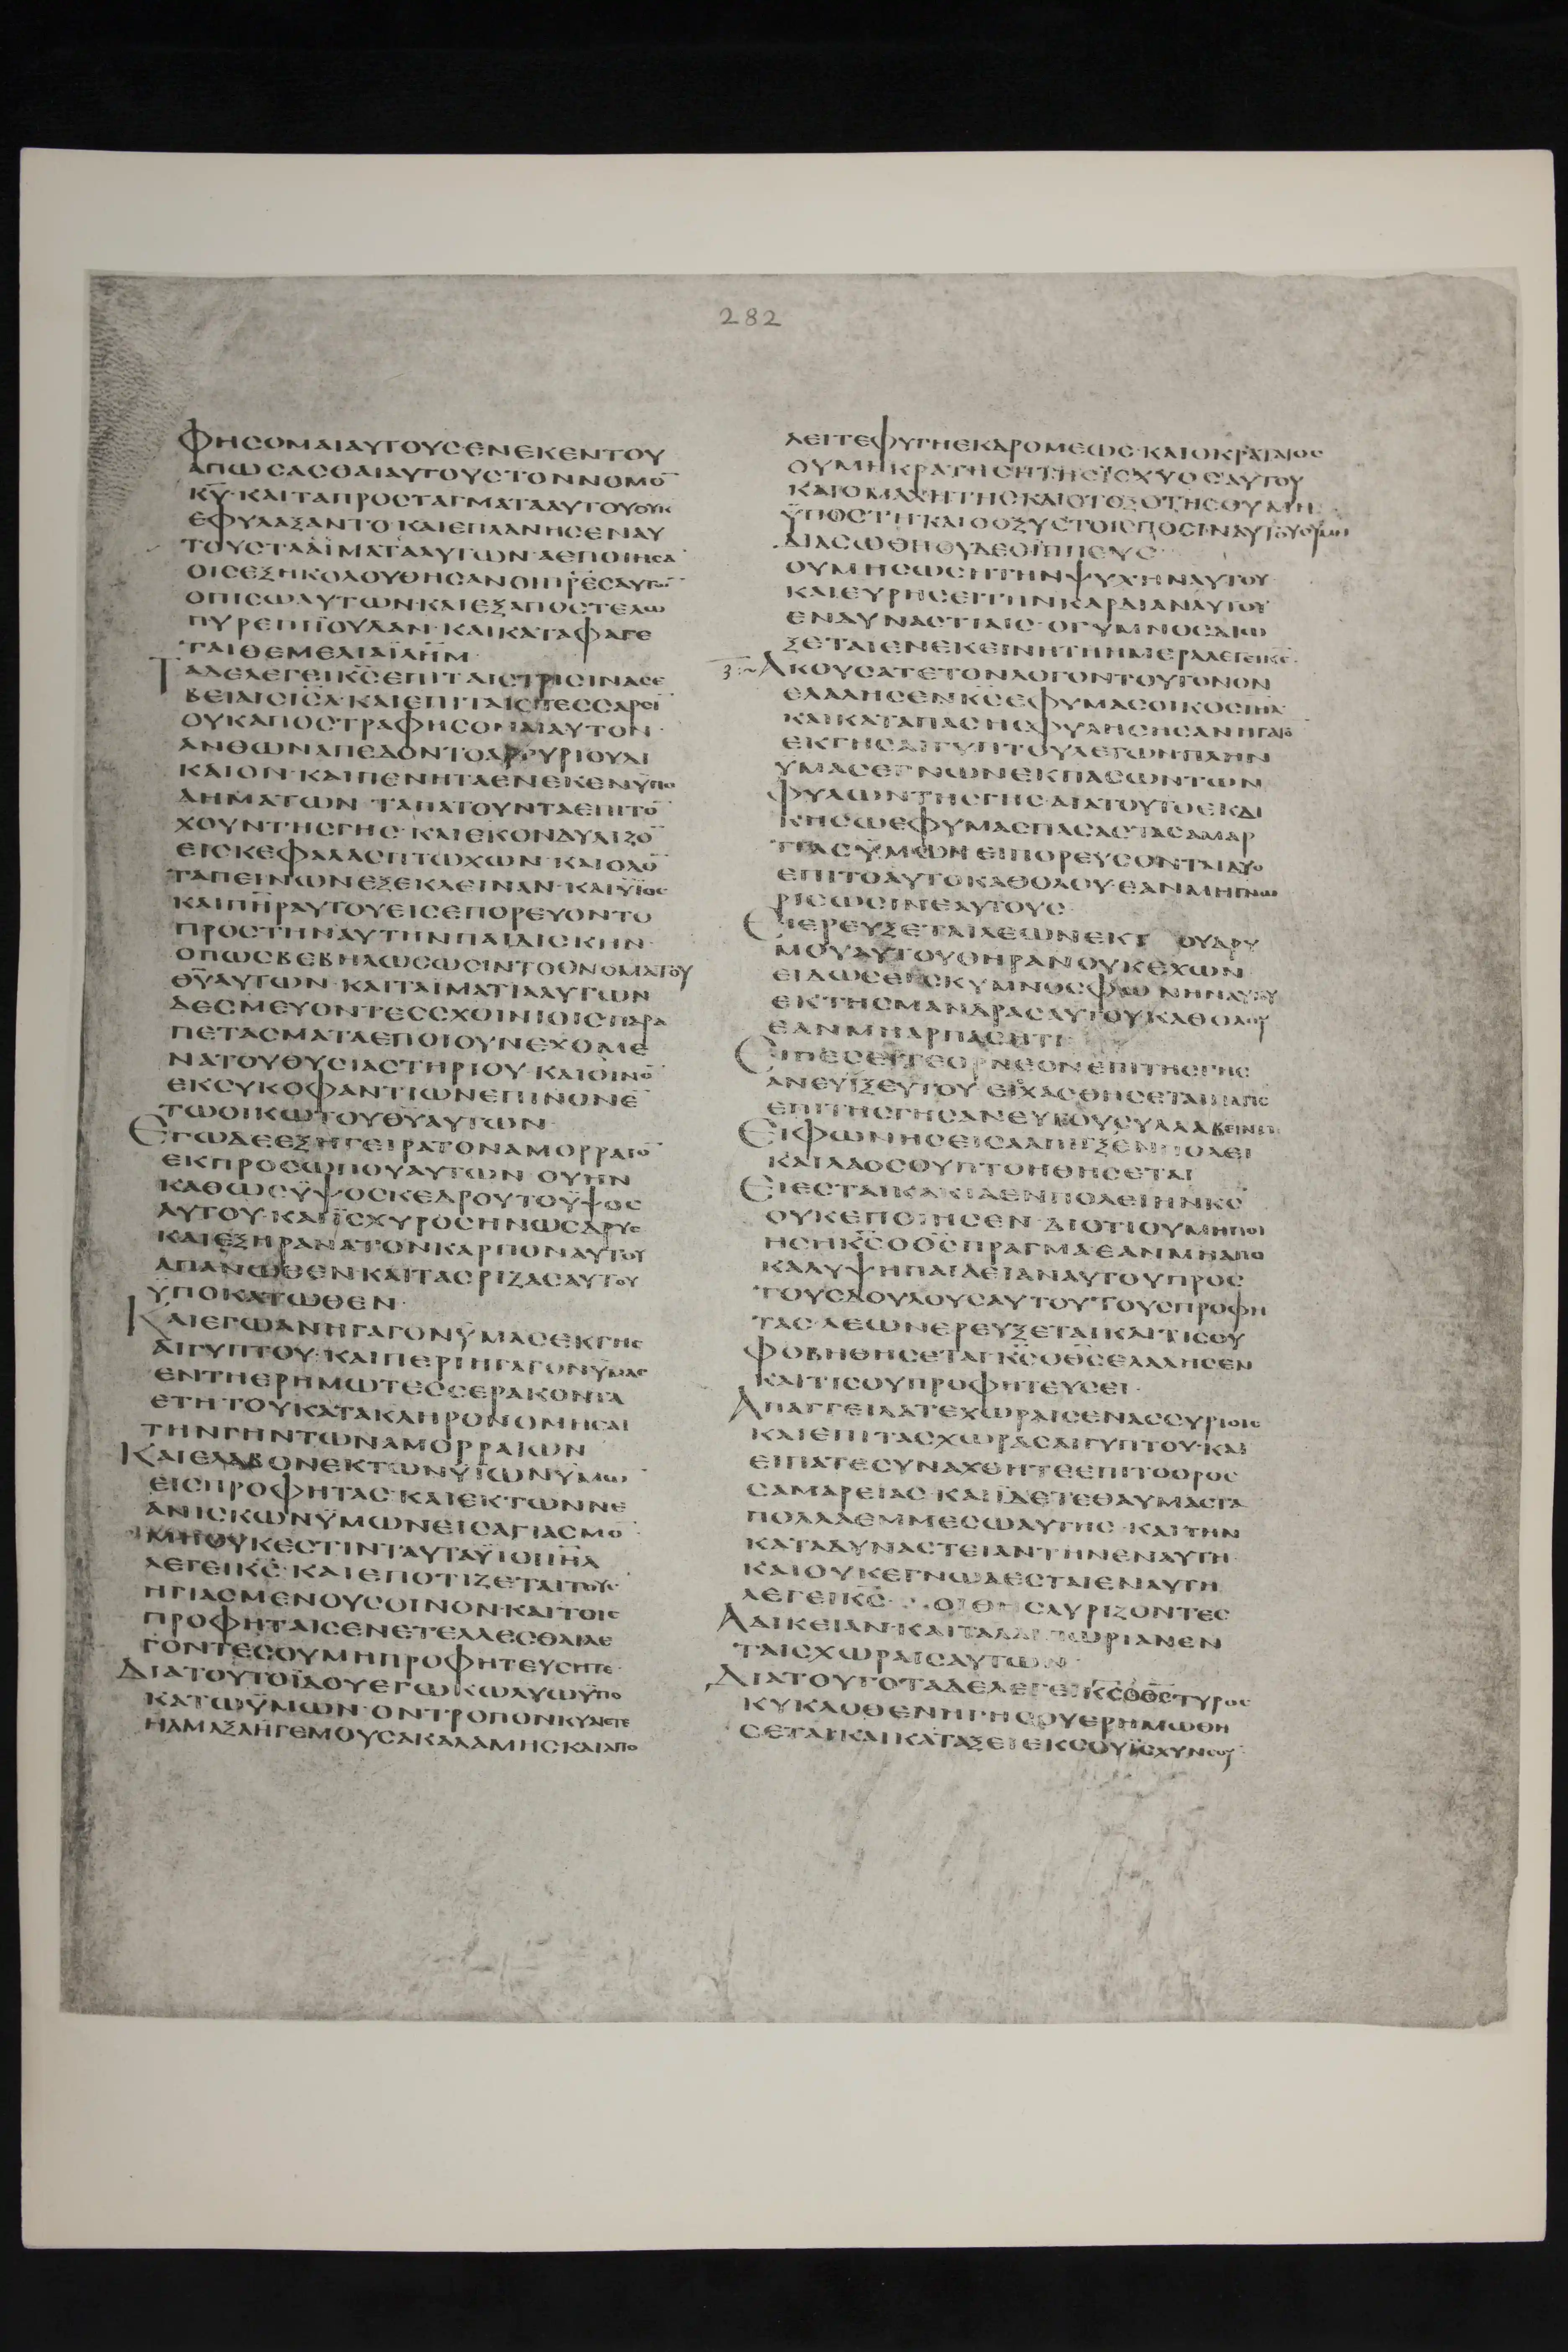 282
ΦΗСΟΜΑΙΑΥΤΟΥС·ΕΝΕΚΕΝΤΟΥ
ΑΠΩСΑСΘΑΙΑΥΤΟΥСΤΟΝΝΟΜΟ̅
Κ̅Υ̅·ΚΑΙΤΑΠΡΟСΤΑΓΜΑΤΑΑΥΤΟΥΟΥΚ
ΕΦΥΛΑΞΑΝΤΟ·ΚΑΙΕΠΛΑΝΗСΕΝΑΥ
ΤΟΥСΤΑ ΜΑΤΑΙΑΑΥΤΩΝ·ΑΕΠΟΙΗСΑ̅
ΟΙСΕΞΗΚΟΛΟΥΘΗСΑΝΟΙΠ̅Ρ̅ΕСΑΥΤΩ̅
ΟΠΙСΩΑΥΤΩΝ·ΚΑΙΕΞΑΠΟСΤΕΛΩ
ΠΥΡΕΠΙΪΟΥΔΑΝ·ΚΑΙΚΑΤΑΦΑΓΕ
ΤΑΙΘΕΜΕΛΙΑΪ̅Λ̅Η̅Μ̅
ΤΑΔΕΛΕΓΕΙΚ̅С̅ΕΠΙΤΑΙСΤΡΙСΙΝΑСΕ
ΒΕΙΑΙСΙ̅С̅Λ̅·ΚΑΙΕΠΙΤΑΙСΤΕССΑΡСΙ̅
ΟΥΚΑΠΟСΤΡΑΦΗСΟΜΑΙΑΥΤΟΝ·
ΑΝΘΩΝΑΠΕΔΟΝΤΟΑΡΓΥΡΙΟΥΔΙ
ΚΑΙΟΝ·ΚΑΙΠΕΝΗΤΑΕΝΕΚΕΝΫΠΟ
ΔΗΜΑΤΩΝ·ΤΑΠΑΤΟΥΝΤΑΕΠΙΤΟ̅
ΧΟΥΝΤΗСΓΗС·ΚΑΙΕΚΟΝΔΥΛΙΖΟ̅
ΕΙСΚΕΦΑΛΑСΠΤΩΧΩΝ·ΚΑΙΟΔΟ̅
ΤΑΠΕΙΝΩΝΕΞΕΚΛΕΙΝΑΝ·ΚΑΙΫΙΟС
ΚΑΙΠ̅Η̅Ρ̅ΑΥΤΟΥΕΙСΕΠΟΡΕΥΟΝΤΟ
ΠΡΟСΤΗΝΑΥΤΗΝΠΑΙΔΙСΚΗΝ·
ΟΠΩСΒΕΒΗΛΩСΩСΙΝΤΟΟΝΟΜΑΤΟΥ
Θ̅Υ̅ΑΥΤΩΝ·ΚΑΙΤΑΪΜΑΤΙΑΑΥΤΩΝ
ΔΕСΜΕΥΟΝΤΕССΧΟΙΝΙΟΙСΠΑΡΑ
ΠΕΤΑСΜΑΤΑΕΠΟΙΟΥΝΕΧΟΜΕ
ΝΑΤΟΥΘΥСΙΑСΤΗΡΙΟΥ·ΚΑΙΟΙΝΟ̅
ΕΚСΥΚΟΦΑΝΤΙΩΝΕΠΙΝΟΝΕ̅
ΤΩΟΙΚΩΤΟΥΘ̅Υ̅ΑΥΤΩΝ·
ΕΓΩΔΕΕΞΗΓΕΙΡΑΤΟΝΑΜΟΡΡΑΙΟ̅
ΕΚΠΡΟСΩΠΟΥΑΥΤΩΝ·ΟΥΗΝ
ΚΑΘΩСΫΨΟСΚΕΔΡΟΥΤΟΫΨΟС
ΑΥΤΟΥ·ΚΑΙΪСΧΥΡΟСΗΝΩСΔΡΥС
ΚΑΙΕΞΗΡΑΝΑΤΟΝΚΑΡΠΟΝΑΥΤΟΥ
ΑΠΑΝΩΘΕΝΚΑΙΤΑСΡΙΖΑСΑΥΤΟΥ
ΫΠΟΚΑΤΩΘΕΝ·
ΚΑΙΕΓΩΑΝΗΓΑΓΟΝΫΜΑСΕΚΓΗС
ΑΙΓΥΠΤΟΥ·ΚΑΙΠΕΡΙΗΓΑΓΟΝΫΜΑС
ΕΝΤΗΕΡΗΜΩΤΕССΕΡΑΚΟΝΤΑ
ΕΤΗΤΟΥΚΑΤΑΚΛΗΡΟΝΟΜΗСΑΙ
ΤΗΝΓΗΝΤΩΝΑΜΟΡΡΑΙΩΝ
ΚΑΙΕΛΑΒΟΝΕΚΤΩΝΫΙΩΝΫΜΩ̅
ΕΙСΠΡΟΦΗΤΑС·ΚΑΙΕΚΤΩΝΝΕ
ΑΝΙСΚΩΝΫΜΩΝΕΙСΑΓΙΑСΜΟ̅
ΜΗΟΥΚΕСΤΙΝΤΑΥΤΑΫΙΟΙΙ̅Η̅Λ̅
ΛΕΓΕΙΚ̅С̅·ΚΑΙΕΠΟΤΙΖΕΤΑΙΤΟΥС
ΗΓΙΑСΜΕΝΟΥСΟΙΝΟΝ·ΚΑΙΤΟΙС
ΠΡΟΦΗΤΑΙСΕΝΕΤΕΛΛΕСΘΑΙΛΕ
ΓΟΝΤΕСΟΥΜΗΠΡΟΦΗΤΕΥСΗΤΕ·
ΔΙΑΤΟΥΤΟΪΔΟΥΕΓΩΚΩΛΥΩΫΠΟ
ΚΑΤΩΫΜΩΝ·ΟΝΤΡΟΠΟΝΚΥΛΙΕΤΕ
ΗΑΜΑΞΑΗΓΕΜΟΥСΑΚΑΛΑΜΗС·ΚΑΙΑΠΟ
ΛΕΙΤΕΦΥΓΗΕΚΔΡΟΜΕΩС·ΚΑΙΟΚΡΑΤΑΙΟС
ΟΥΜΗΚΡΑΤΗСΗΤΗСΪСΧΥΟСΑΥΤΟΥ
ΚΑΙΟΜΑΧΗΤΗСΚΑΙΟΤΟΞΟΤΗСΟΥΜΗ
ΫΠΟСΤΗ·ΚΑΙΟΟΞΥСΤΟΙСΠΟСΙΝΑΥΤΟΥΟΥΜΗ
ΔΙΑСΩΘΗΟΥΔΕΟΪΠΠΕΥС
ΟΥΜΗСΩСΗΤΗΝΨΥΧΗΝΑΥΤΟΥ
ΚΑΙΕΥΡΗСΕΙΤΗΝΚΑΡΔΙΑΝΑΥΤΟΥ
ΕΝΔΥΝΑСΤΙΑΙС·ΟΓΥΜΝΟСΔΙΩ
ΞΕΤΑΙΕΝΕΚΕΙΝΗΤΗΗΜΕΡΑΛΕΓΕΙΚ̅С̅·
ΑΚΟΥСΑΤΕΤΟΝΛΟΓΟΝΤΟΥΤΟΝΟΝ
ΕΛΑΛΗСΕΝΚ̅С̅ΕΦΥΜΑСΟΙΚΟСΙ̅Η̅Λ̅
ΚΑΙΚΑΤΑΠΑСΗСΦΥΛΗСΗСΑΝΗΓΑΓΟ̅
ΕΚΓΗСΑΙΓΥΠΤΟΥΛΕΓΩΝ·ΠΛΗΝ
ΥΜΑСΕΓΝΩΝΕΚΠΑСΩΝΤΩΝ
ΦΥΛΩΝΤΗСΓΗС·ΔΙΑΤΟΥΤΟΕΚΔΙ
ΚΗСΩΕΦΥΜΑСΠΑСΑСΤΑСΑΜΑΡ
ΤΙΑСΫΜΩΝ·ΕΙΠΟΡΕΥСΟΝΤΑΙΔΥΟ
ΕΠΙΤΟΑΥΤΟΚΑΘΟΛΟΥ·ΕΑΝΜΗΓΝΩ
ΡΙСΩСΙΝΕΑΥΤΟΥС
ΕΙΕΡΕΥΞΕΤΑΙΛΕΩΝΕΚΤ ΟΥΔΡΥ
ΜΟΥΑΥΤΟΥΘΗΡΑΝΟΥΚΕΧΩΝ
ΕΙΔΩСΕΙСΚΥΜΝΟСΦΩΝΗΝΑΥΤΟΥ
ΕΚΤΗСΜΑΝΔΡΑСΑΥΤΟΥΚΑΘΟΛΟΥ
ΕΑΝΜΗΑΡΠΑСΗΤΙ
ΕΙΠΕСΕΙΤΕΟΡΝΕΟΝΕΠΙΤΗСΓΗС
ΑΝΕΥΪΞΕΥΤΟΥ·ΕΙСΧΑСΘΗСΕΤΑΙΠΑΓΙС
ΕΠΙΤΗСΓΗСΑΝΕΥΤΟΥСΥΛΛΑΒΕΙΝΤΙ
ΕΙΦΩΝΗСΕΙСΑΛΠΙΓΞΕΝΠΟΛΕΙ
ΚΑΙΛΑΟСΟΥΠΤΟΗΘΗСΕΤΑΙ
ΕΙΕСΤΑΙΚΑΚΙΑΕΝΠΟΛΕΙΗΝΚ̅С̅
ΟΥΚΕΠΟΙΗСΕΝ·ΔΙΟΤΙΟΥΜΗΠΟΙ
ΗСΗΚ̅С̅ΟΘ̅С̅ΠΡΑΓΜΑΕΑΝΜΗΑΠΟ
ΚΑΛΥΨΗΠΑΙΔΕΙΑΝΑΥΤΟΥΠΡΟС
ΤΟΥСΔΟΥΛΟΥСΑΥΤΟΥΤΟΥСΠΡΟΦΗ
ΤΑС·ΛΕΩΝΕΡΕΥΞΕΤΑΙΚΑΙΤΙСΟΥ
ΦΟΒΗΘΗСΕΤΑΙ·Κ̅С̅ΟΘ̅С̅ΕΛΑΛΗСΕΝ
ΚΑΙΤΙСΟΥΠΡΟΦΗΤΕΥСΕΙ·
ΑΠΑΓΓΕΙΛΑΤΕΧΩΡΑΙСΕΝΑССΥΡΙΟΙС
ΚΑΙΕΠΙΤΑСΧΩΡΑСΑΙΓΥΠΤΟΥ·ΚΑΙ
ΕΙΠΑΤΕСΥΝΑΧΘΗΤΕΕΠΙΤΟΟΡΟС
СΑΜΑΡΕΙΑС·ΚΑΙΪΔΕΤΕΘΑΥΜΑСΤΑ
ΠΟΛΛΑΕΜΜΕСΩΑΥΤΗС·ΚΑΙΤΗΝ
ΚΑΤΑΔΥΝΑСΤΕΙΑΝΤΗΝΕΝΑΥΤΗ·
ΚΑΙΟΥΚΕΓΝΩΑΕСΤΑΙΕΝΑΥΤΗ
ΛΕΓΕΙΚ̅С̅·ΟΙΘΗСΑΥΡΙΖΟΝΤΕС
ΑΔΙΚΕΙΑΝ·ΚΑΙΤΑΛΑΙΠΩΡΙΑΝΕΝ
ΤΑΙСΧΩΡΑΙСΑΥΤΩΝ·
ΔΙΑΤΟΥΤΟΤΑΔΕΛΕΓΕΙΚ̅С̅ΟΘ̅С̅ΤΥΡΟС
ΚΥΚΛΟΘΕΝΗΓΗСΟΥΕΡΗΜΩΘΗ
СΕΤΑΙ·ΚΑΙΚΑΤΑΞΕΙΕΚСΟΥΪСΧΥΝСΟΥ